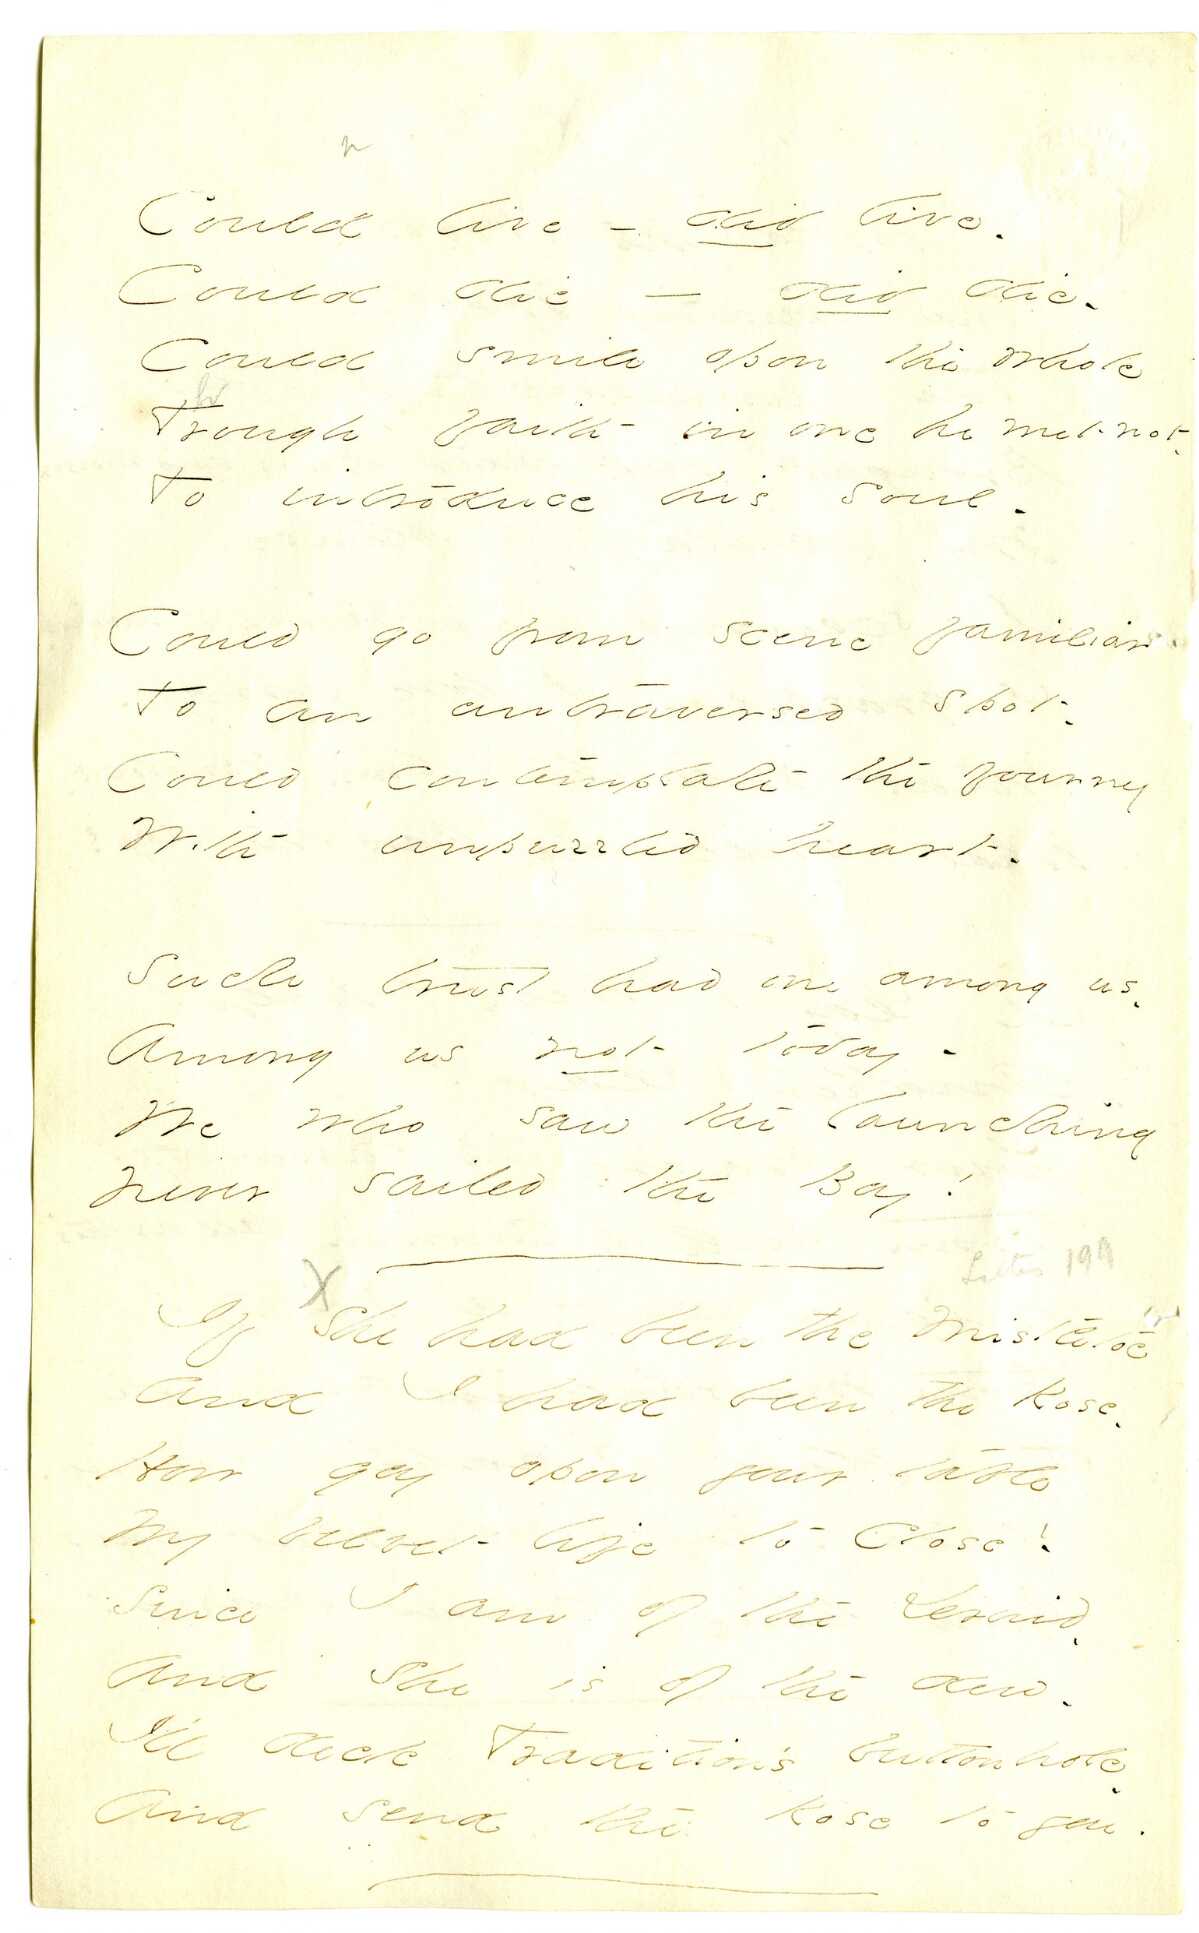 Could live – did live.
Could die – did die.
Could smile upon the whole
h
Trough faith in one he met not.
To introduce his soul.
Could go from scene familiar
To an untraversed spot.
Could contemplate the journey
With unpuzzled heart.
Such trust had one among us.
Among us not today -
We who saw the launching
never sailed the Bay!
X
If She had been the Mistletoe
And I had been the Rose.
How gay upon your table
My velvet life to Close!
Since I am of the Druid.
And She is of the dew.
I'll deck Tradition's buttonhole.
And send the Rose to you.